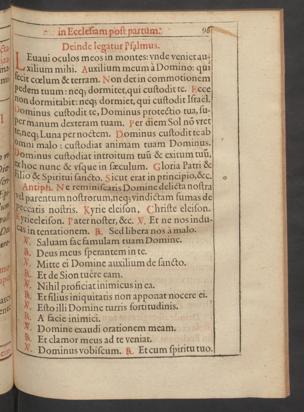 in Ecclesiam post partum. 96
Deinde legatur Psalmus.
Leuaui oculos meos in montes: vnde veniet au-
xilium mihi. Auxilium meum à Domino: qui
fecit cœlum & terram. Non det in commotionem
pedem tuum: neq; dormitet, qui custodit te. Ecce
non dormitabit: neq; dormiet, qui custodit Israel.
Dominus custodit te, Dominus protectio tua, su-
per manum dexteram tuam. Per diem Sol nõ vret
te, neq; Luna per noctem. Dominus custodit te ab
omni malo: custodiat animam tuam Dominus.
Dominus custodiat introitum tuũ & exitum tuũ,
ex hoc nunc & vsque in sæculum. Gloria Patri &
Filio & Spiritui sancto. Sicut erat in principio, &c.
Antiph. Ne reminiscaris Domine delicta nostra
vel parentum nostrorum, neq; vindictam sumas de
peccatis nostris. Kyrie eleison. Christe eleison.
Kyrie eleison. Pater noster, &c. ℣. Et ne nos indu-
cas in tentationem. ℟. Sed libera nos à malo.
℣. Saluam fac famulam tuam Domine.
℟. Deus meus sperantem in te.
℣. Mitte ei Domine auxilium de sancto.
℟. Et de Sion tuêre eam.
℣. Nihil proficiat inimicus in ea.
℟. Et filius iniquitatis non apponat nocere ei.
℣. Esto illi Domine turris fortitudinis.
℟. A facie inimici.
℣. Domine exaudi orationem meam.
℟. Et clamor meus ad te veniat.
℣. Dominus vobiscum. ℟. Et cum spiritu tuo.